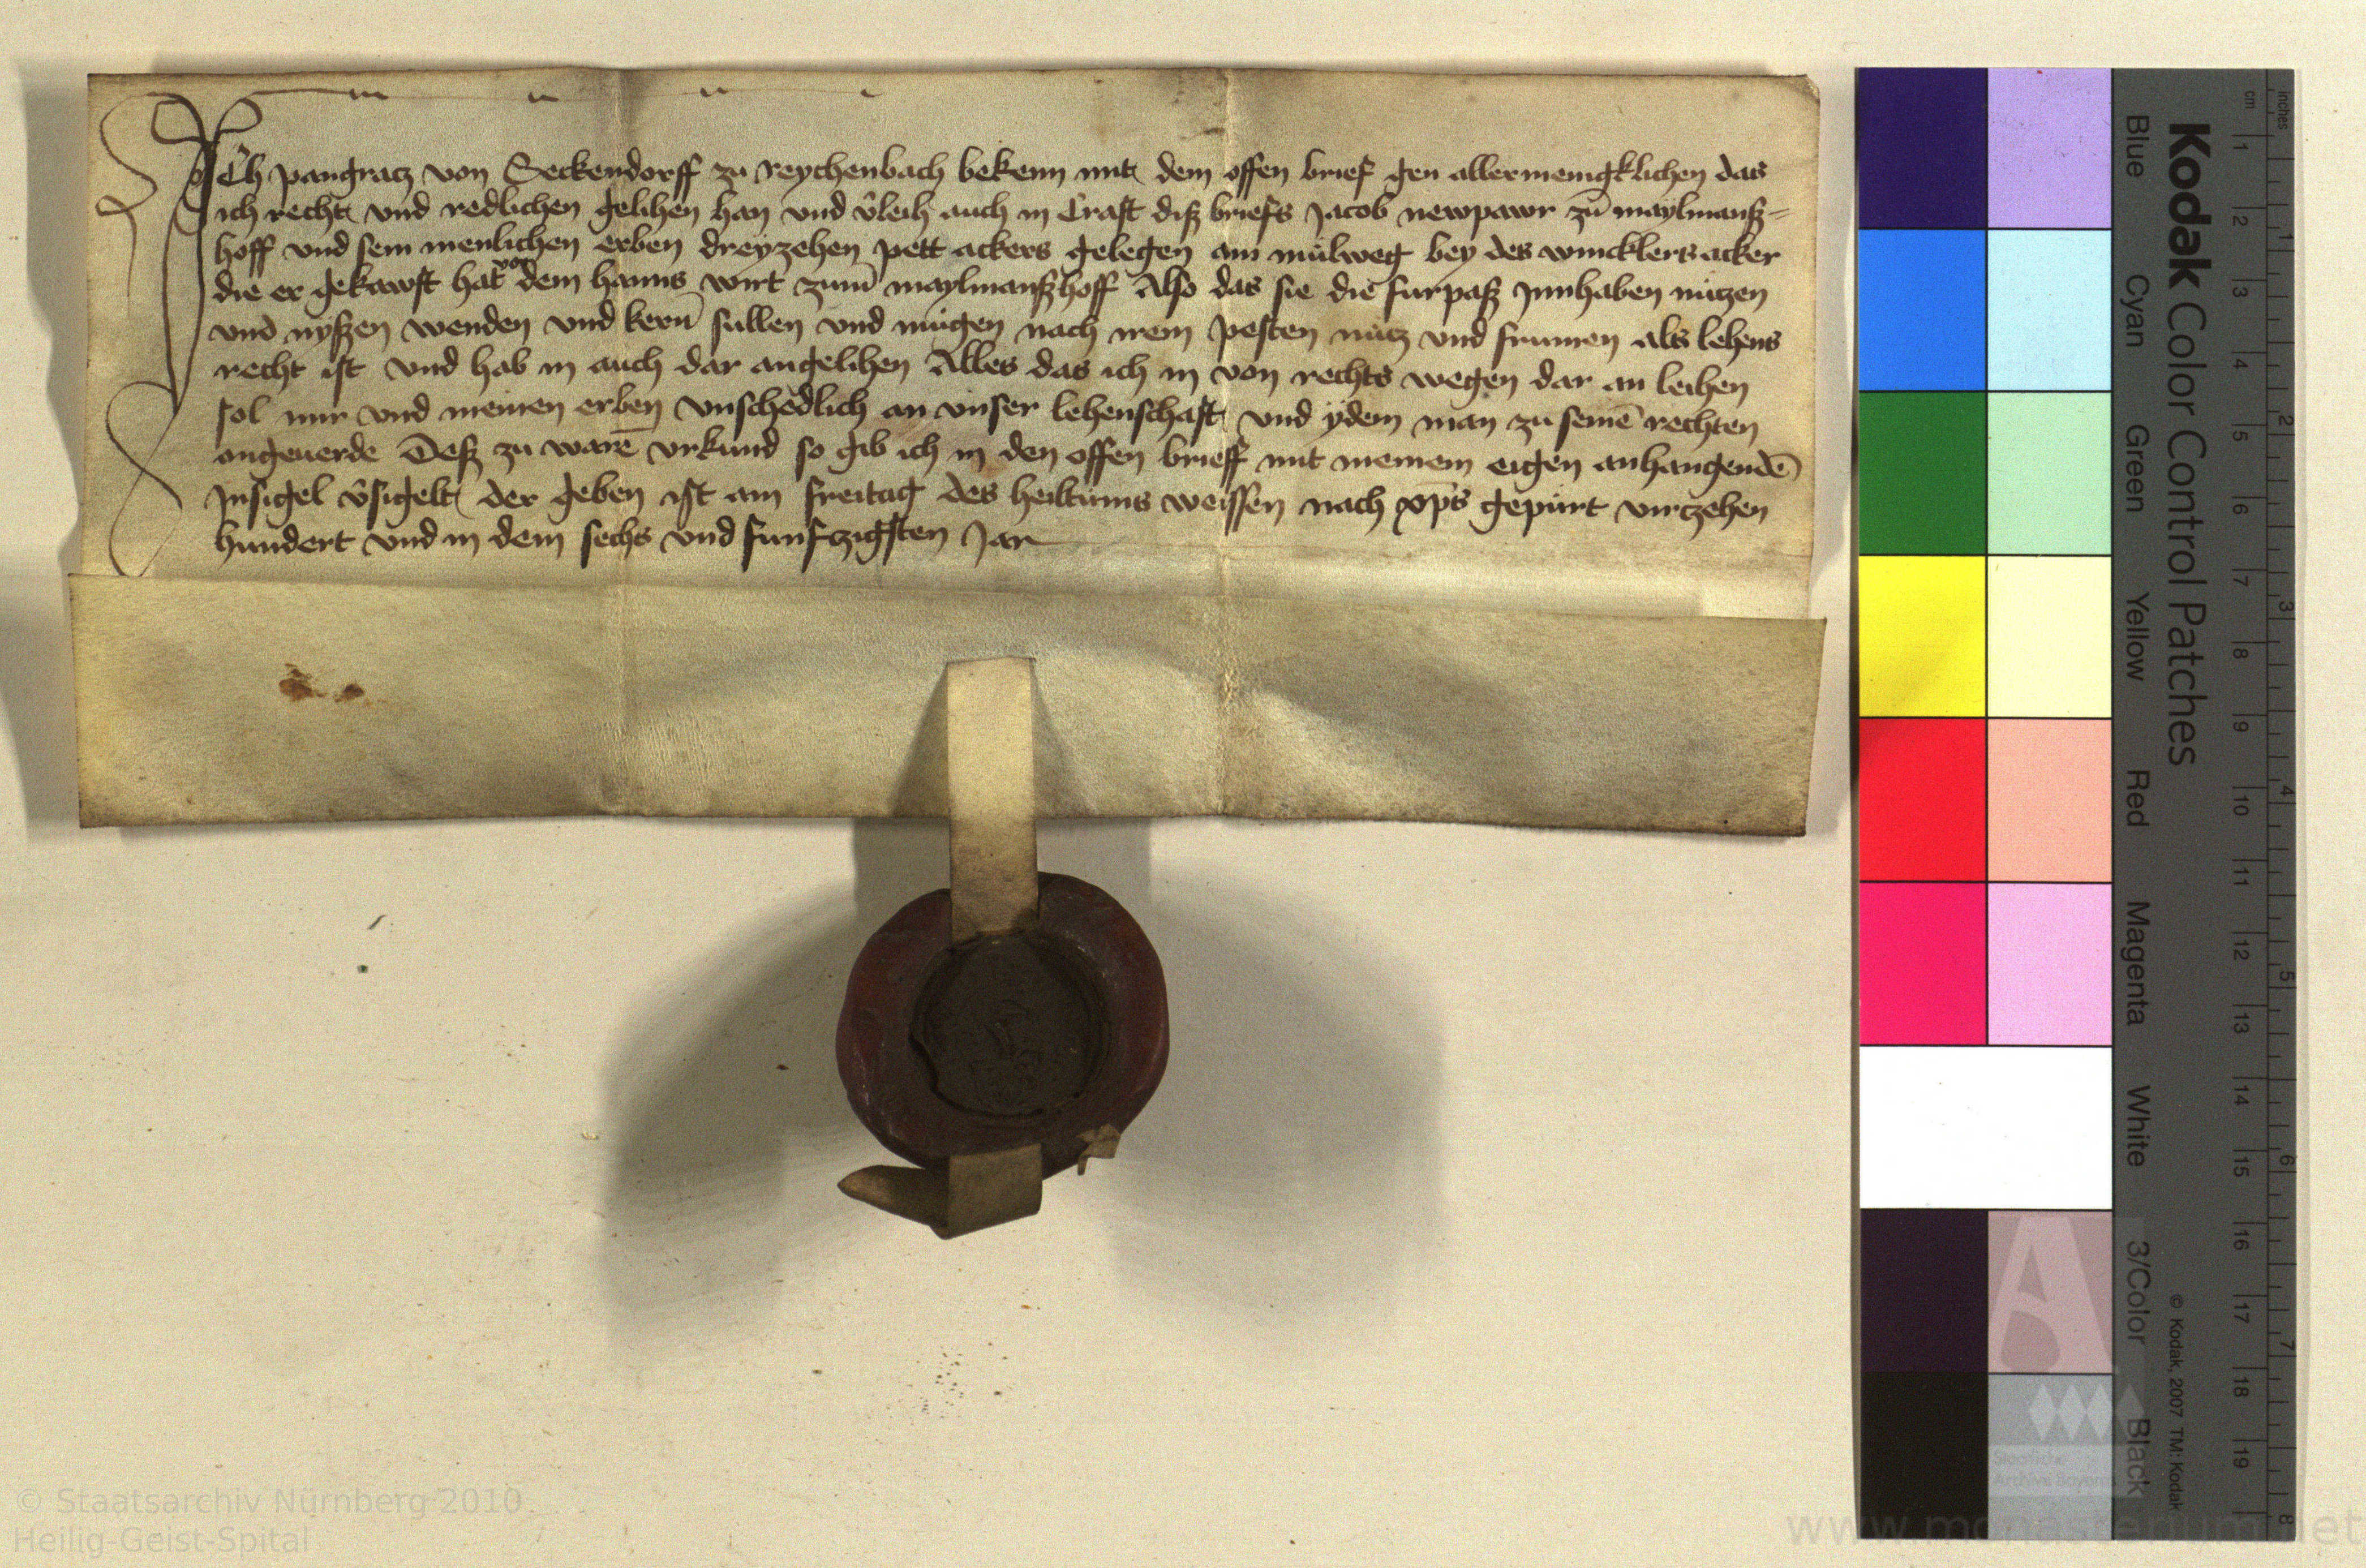 ICh pangratz von Seckendorff zu reychenbach bekenn mit dem offen brief gen allermenigklichen das
ich recht und redlichen gelihen han und v̄leih auch in Craft diß briefs Jacob newpawr zu maylmanß=
hoff und sein menlichen erben dreyzehen pett ackers gelegen am mülweg bey des wincklers acker
die er gekawft hat von dem hanns wirt zum maylmanßhoff Also das sie die furpaß Innhaben nützen
und nyßen wenden und kern̄ sullen und mügen nach irem pesten nutz und frumen als lehens
recht ist und hab in auch dar an gelihen Alles das ich in von rechts wegen dar an leihen
sol mir und meinen erben unschedlich an unser lehenschaft und ydem man zu seinē rechten
ongeuerde Deß zu warē urkund so gib ich in den offen brieff mit meinem eigen anhangendē
Insigel v̄sigelt der geben ist am freitag des heiltums weissen nach xp̄s gepürt virtzehen
hundert und in dem sechs und funftzigsten Jar
Kodak Color Control Patches
Blue Cyan Green Yellow Red Magenta White 3/Color Black
© Kodak, 2007 TM: Kodak
cm 1 2 3 4 5 6 7 8 9 10 11 12 13 14 15 16 17 18 19
inches 1 2 3 4 5 6 7 8
Staatliche
Archive Bayerns
© Staatsarchiv Nürnberg 2010
Heilig-Geist-Spital
www.monasterium.net